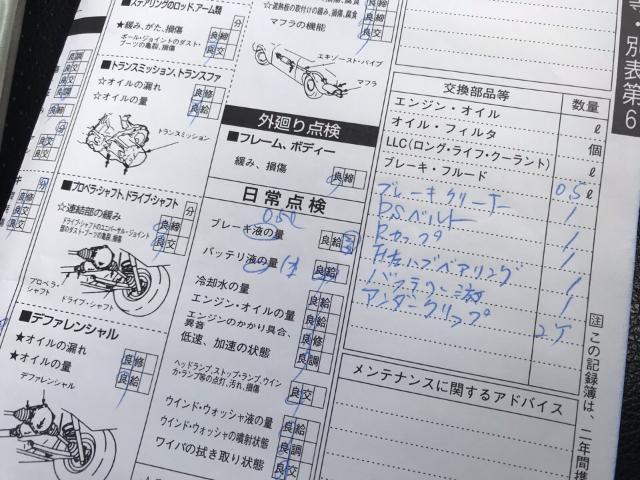 ■ステアリングのロッド、アーム類
分
★緩み、がた、損傷
良 締
ボール・ジョイントのダスト・ブーツの亀裂、損傷
良 交
■トランスミッション、トランスファ
☆オイルの漏れ
良 修
☆オイルの量
良 給
トランスミッション
■プロペラ・シャフト、ドライブ・シャフト
分
☆連結部の緩み
良 締
ドライブ・シャフトのユニバーサル・ジョイント部のダスト・ブーツの亀裂、損傷
良 交
プロペラ・シャフト
ドライブ・シャフト
■デファレンシャル
★オイルの漏れ
良 修
★オイルの量
良 給
デファレンシャル
☆遮熱板の取付けの緩み、損傷、腐食
マフラの機能
エキゾースト・パイプ
マフラ
外廻り点検
■フレーム、ボディー
緩み、損傷
良 締
日常点検
ブレーキ液の量
良 給
バッテリ液の量
良 給
冷却水の量
良 給
エンジン・オイルの量
良 給
エンジンのかかり具合、異音
良 修
低速、加速の状態
良 調
ヘッドランプ、ストップ・ランプ、ウインカ・ランプ等の点灯、汚れ、損傷
良 交
ウインド・ウォッシャ液の量
良 給
ウインド・ウォッシャの噴射状態
良 調
ワイパの拭き取り状態
良 交
別表第6
交換部品等 数量
エンジン・オイル ℓ
オイル・フィルタ 個
LLC(ロング・ライフ・クーラント) ℓ
ブレーキ・フルード 0.5 ℓ
ブレーキクリーナー 1
PSベルト 1
Rカップ 1
ハブベアリング 1
バッテリー液 1
アンダークリップ
メンテナンスに関するアドバイス
注 この記録簿は、二年間携